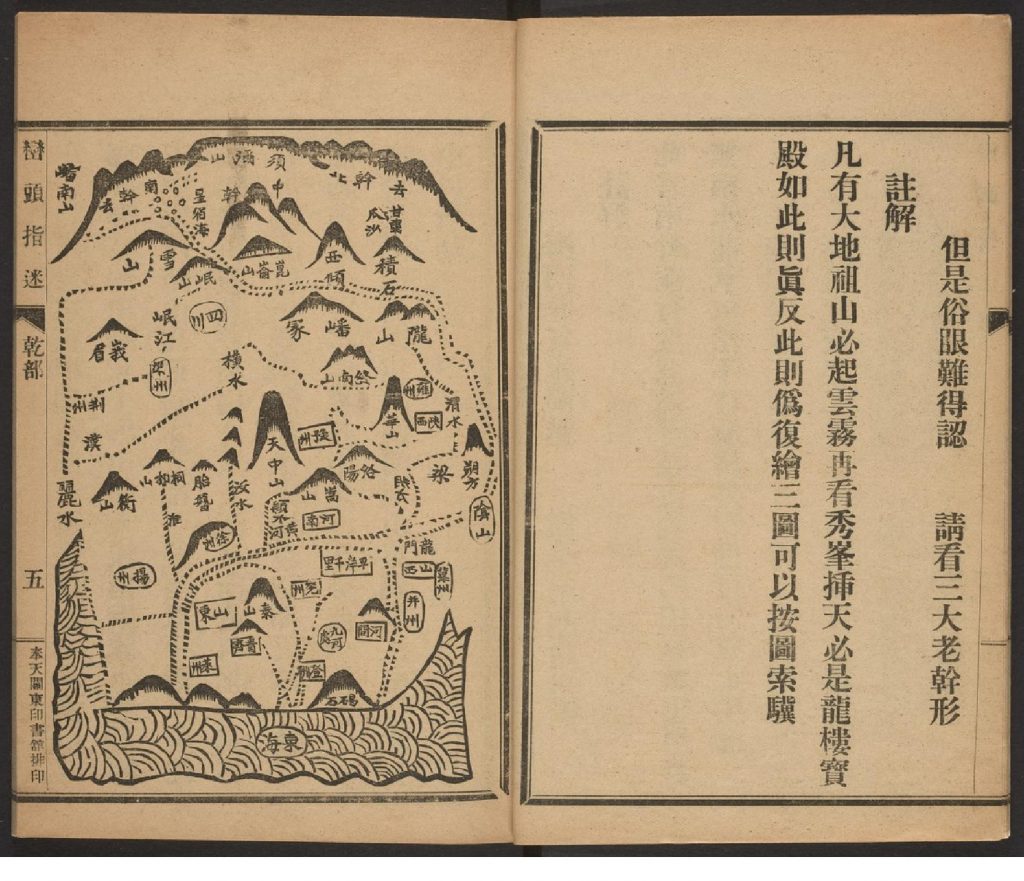 但是俗眼難得認　請看三大老幹形
註解
凡有大地祖山必起雲霧再看秀峯挿天必是龍樓寳
殿如此則眞反此則僞復繪三圖可以按圖索驥
巒頭指迷
乾部
五
奉天關東印書館排印
須彌山
中幹
北幹去
南幹去
星宿海
甘肅
瓜沙
積石
西傾
崑崙山
岷山
雪山
四川
岷江
峩眉
隴山
嶓冢
終南山
橫水
雍州
陝西
華山
渭水
朔方
梁
陰山
荆州
漢
麗水
衡山
桐柏山
淮
胎簪
汝水
天中山
豫州
洛陽
嵩山
河南
潁水
黃河
龍門
山西
冀州
并州
徐州
揚州
平岸千里
兖州
泰山
山東
青州
萊州
九河處
河間
登州
碣石
東海